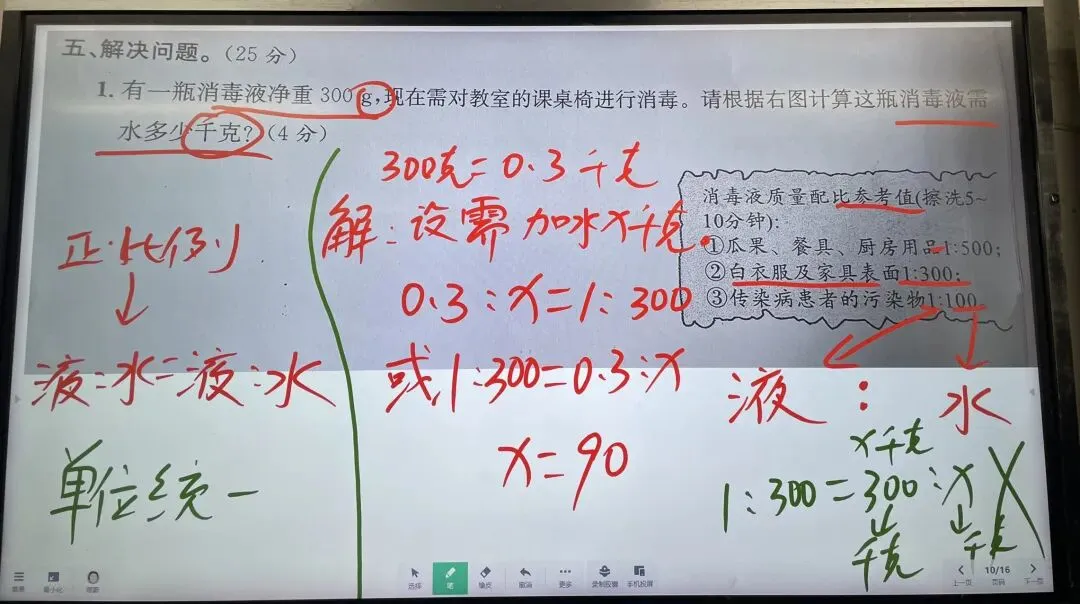 五、解决问题。(25分)
1. 有一瓶消毒液净重300g,现在需对教室的课桌椅进行消毒。请根据右图计算这瓶消毒液需
水多少千克?(4分)
消毒液质量配比参考值(擦洗5~
10分钟):
①瓜果、餐具、厨房用品1:500;
②白衣服及家具表面1:300;
③传染病患者的污染物1:100
正比例
↓
液:水=液:水
单位统一
300克=0.3千克
解:设需加水x千克.
0.3:x=1:300
或1:300=0.3:x
x=90
液:水
x千克
1:300=300:x
千克 千克
选择 笔 橡皮 撤消 更多 录制胶囊 手机投屏
上一页 10/16 页码 下一页